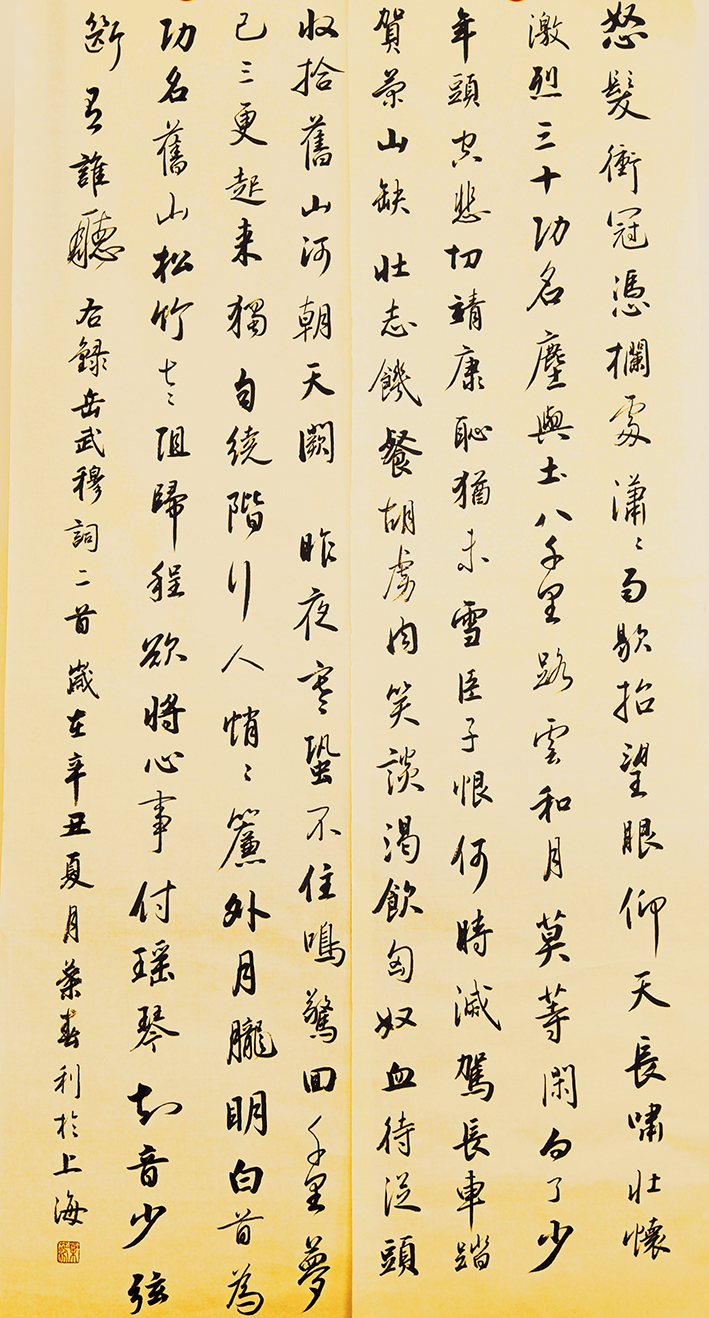 怒髮衝冠憑欄處瀟〻雨歇抬望眼仰天長嘯壯懷
激烈三十功名塵與土八千里路雲和月莫等閑白了少
年頭空悲切靖康恥猶未雪臣子恨何時滅駕長車踏
賀蘭山缺壯志饑餐胡虜肉笑談渴飲匈奴血待從頭
收拾舊山河朝天闕 昨夜寒蛩不住鳴驚回千里夢
已三更起來獨自繞階行人悄〻簾外月朧明白首為
功名舊山松竹老阻歸程欲將心事付瑤琴知音少弦
斷有誰聽 右錄岳武穆詞二首 歲在辛丑夏月葉春利於上海